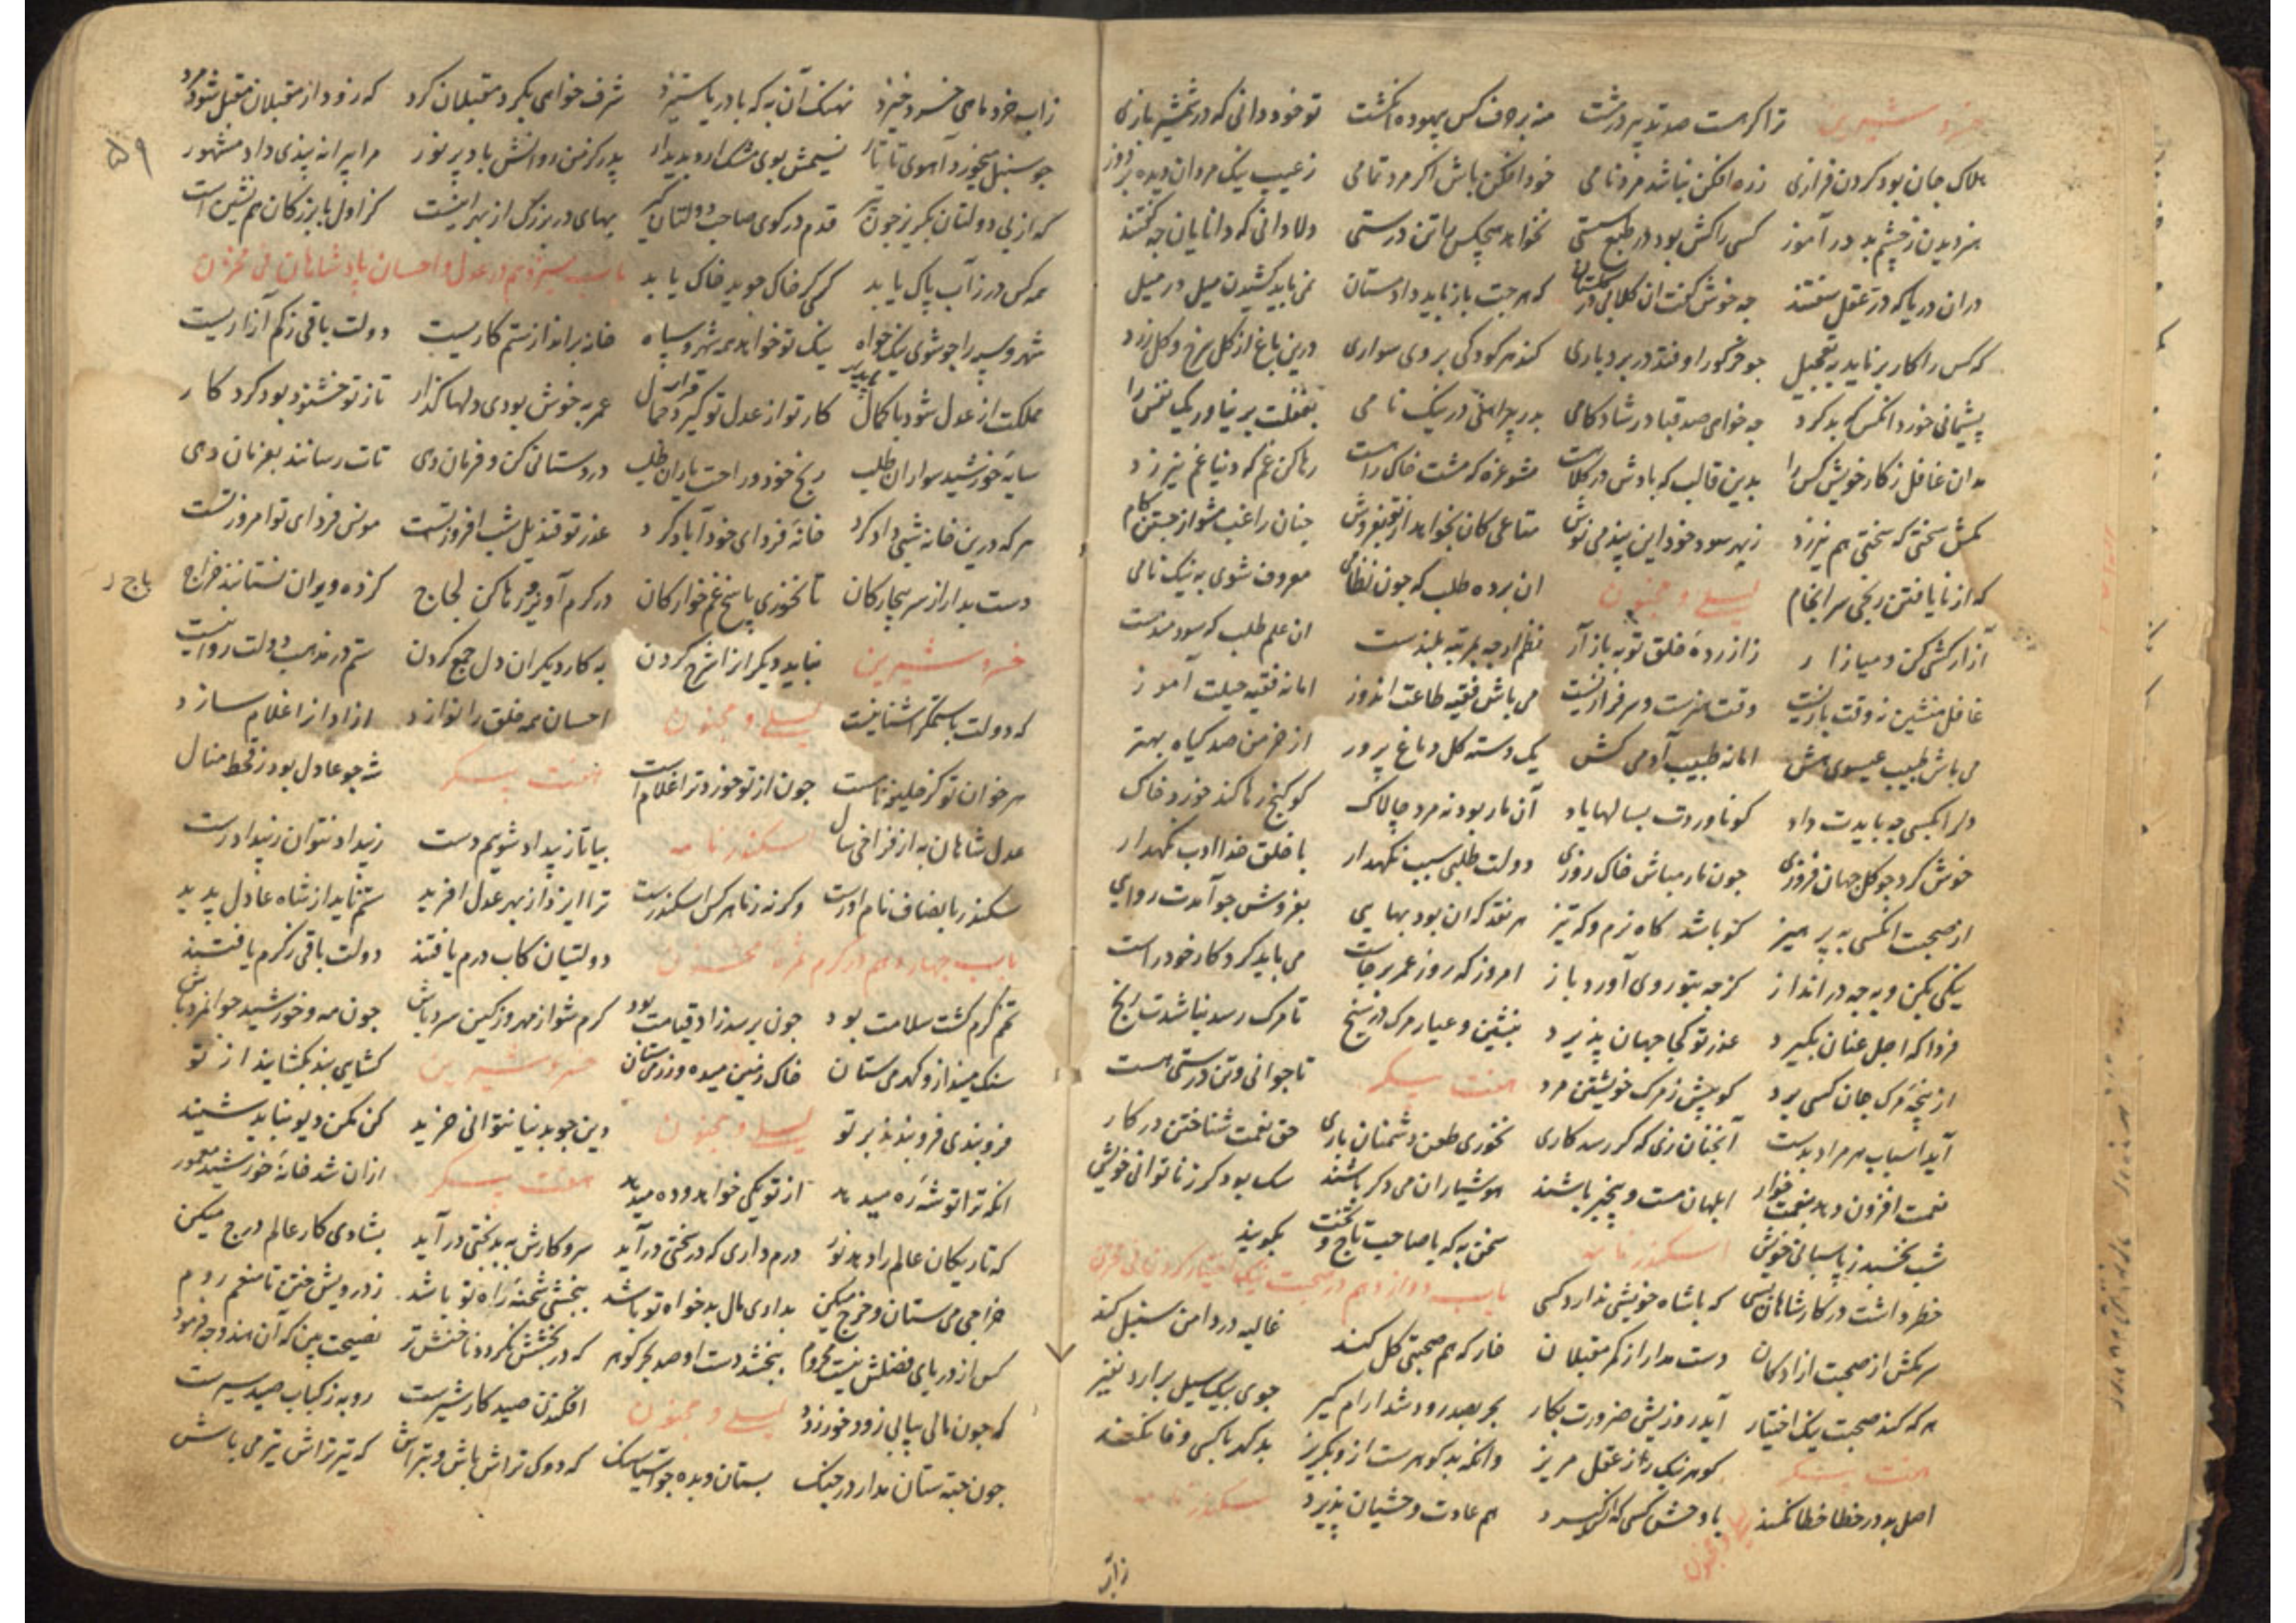 خسرو شیرین ترا کر هست صد تدبیر درشت منه بر حرف کس بیهوده انکشت تو خود دانی که در شمشیر بازی
هلاک جان بود کردن فرازی زره افکن نباشد مرد نامی خود افکن باش اکر مرد تمامی ز عیب نیک مردان دیده بر دوز
هنر دیدن ز چشم بد در آموز کسی را کش بود در طبع سستی نخواهد هیچکس را تن درستی دلا دانی که دانایان چه گفتند
دران دریا که در عقل سفتند چه خوش کفت ان کلابی در کلستان که هرچت باز باید داد مستان نمی باید کشیدن میل در میل
که کس را کار بر ناید بتعجیل چو خرکور اوفتد در بردباری کند هر کودکی بر وی سواری درین باغ از کل سرخ و کل زرد
پشیمانی خورد انکس که بد کرد چه خواهی صد قبا در شادکامی بدر پیراهنی در نیک نامی بغفلت بر نیاور یک نفس را
مدان غافل ز کار خویش کس را بدین قالب که بادش در کلاهست مشو غره که مشت خاک راهست رها کن غم که دنیا غم نیرزد
مکش سختی که سختی هم نیرزد ز بهر سود خود این پند می نوش متاعی کان نخواهد از تو مفروش چنان راغب مشو از جستن کام
که از نایافتن رنجی سرانجام لیلی و مجنون ان برده طلب که چون نظامی معروف شوی به نیک نامی
آزارکشی کن و میازار زازرده خلق توبه باز آر نظم ارچه بمرتبه بلندست ان علم طلب که سودمندست
غافل منشین نه وقت بازیست وقت هنرست و سرفرازیست می باش فقیه طاعت اندوز اما نه فقیه حیلت آموز
می باش طبیب عیسوی هش اما نه طبیب آدمی کش یک دسته کل دماغ پرور از خرمن صد کیاه بهتر
دل را بکسی چه بایدت داد کو ناوردت بسالها یاد آن مار بود نه مرد چالاک کو کنج رها کند خورد خاک
خوش کرد چو کل جهان فروزی چون مار مباش خاک روزی دولت طلبی سبب نکهدار با خلق خدا ادب نکهدار
از صحبت انکسی به پرهیز کو باشد کاه نرم و که تیز هر نقد که ان بود بهایی بفروش چو آمدت روایی
نیکی بکن و بچه در انداز کز چه بتو روی آورد باز امروز که روز عمر برجاست می باید کرد کار خود راست
فردا که اجل عنان بکیرد عذر تو کجا جهان پذیرد بنشین و عیار مرک در سنج تا مرک رسد نباشدت رنج
از پنجه مرک جان کسی برد کو پیش ز مرک خویشتن مرد هفت پیکر تا جوانی و تن درستی هست
آید اسباب هر مراد بدست آنچنان زی که کر رسد کاری نخوری طعن دشمنان باری حق نعمت شناختن در کار
نعمت افزون دهد بنعمت خوار ابلهان مست و بیخبر باشند هوشیاران می دکر باشند سک بود کر ز ناتوانی خویش
شب نخسبد ز پاسبانی خویش اسکندر نامه سخن به که با صاحب تاج و تخت بکویند
خطر داشت در کار شاهان بسی که با شاه خویشی ندارد کسی باب دوازدهم در صحبت نیک اختیار کردن
سر مکش از صحبت آزادکان دست مدار از کمر مقبلان خار که هم صحبتی کل کند غالیه در دامن سنبل کند
هر که کند صحبت نیک اختیار آید روزیش ضرورت بکار بحر بصد رود شد ارام کیر جوی بیک سیل برارد نفیر
هفت پیکر کوهر نیک را ز عقد مریز وانکه بد کوهرست ازو بکریز بد کهر با کسی وفا نکند
اصل بد در خطا خطا نکند لیلی و مجنون با وحش کسی که انس کیرد هم عادت وحشیان پذیرد سکندر نامه
زاب
زاب خرد ماهی خرد خیزد نهنک آن به که با دریا ستیزد شرف خواهی بکرد مقبلان کرد که زود از مقبلان مقبل شود مرد
چو سنبل میخورد آهوی تاتار نسیمش بوی مشک ارد بدیدار پدر کز من روانش باد پر نور مرا پیرانه پندی داد مشهور
که از بی دولتان بکریز چون تیر قدم در کوی صاحب دولتان کیر بهای در بزرک از بهر اینست کز اول با بزرکان هم نشین است
همه کس در ز آب پاک یابد کسی کر خاک جوید خاک یابد باب سیزدهم در عدل و احسان پادشاهان
شهر و سپه را چو شوی نیک خواه نیک تو خواهد همه شهر و سپاه خانه برانداز ستم کاریست دولت باقی ز کم آزاریست
مملکت از عدل شود با کمال کار تو از عدل تو کیرد جمال عمر به خوش بودی دلها کذار تا ز تو خشنود بود کردکار
سایه خورشید سواران طلب رنج خود و راحت یاران طلب درد ستانی کن و فرمان دهی تات رسانند بفرمان دهی
هر که درین خانه شبی داد کرد خانه فردای خود آباد کرد عذر تو قندیل شب افروز تست مونس فردای تو امروز تست
دست بدار از سر بیچارکان تا نخوری پاسخ غم خوارکان در کرم آویز و رها کن لجاج کز ده ویران نستانند خراج
خسرو شیرین نباید دیکر ازا شرح کردن به کار دیکران دل جمع کردن ستم در مذهب دولت روا نیست
که دولت با ستمکر اشنا نیست لیلی و مجنون احسان همه خلق را نوازد ازاد از اغلام سازد
هر خوان تو کز خلیفه خاست چون از تو خورد ترا غلام است هفت پیکر شه چو عادل بود ز قحط منال
عدل شاهان به از فراخی سال سکندر نامه بیا تا ز بیداد شویم دست ز بیداد نتوان ز بیداد رست
سکندر بانصاف نام اورست وکرنه زنامرکس اسکندرست ترا ایزد از بهر عدل افرید ستم ناید از شاه عادل پدید
باب چهاردهم در کرم دولتیان کاب درم یافتند دولت باقی ز کرم یافتند
تخم کرم کشت سلامت بود چون برسد زاد قیامت بود کرم شو از مهر وز کین سرد باش چون مه و خورشید جوانمرد باش
سنک مینداز و کهر می ستان خاک زمین میده و زر می ستان خسرو شیرین کشایی بند بکشایند از تو
فروبندی فرو بندند بر تو لیلی و مجنون دین چو بدنیا نتوانی خرید کن مکن دیو نباید شنید
انکه ترا توشه ره میدهد از تو یکی خواهد و ده میدهد هفت پیکر ازان شد خانه خورشید معمور
که تاریکان عالم را دهد نور درم داری که در سختی درآید سر و کارش به بدبختی درآید بشادی کار عالم درج میکن
خراجی می ستان و خرج میکن بداری مال بدخواه تو باشد ببخشی شحنه راه تو باشد ز درویش ختن تا منعم روم
کس از دریای فضلش نیست محروم ببخشد دست او صد بحر کوهر که در بخشش نکردد ناخنش تر نصیحت بین که آن هندو چه فرمود
که چون مالی بیابی زود خور زود لیلی و مجنون افکندن صید کار شیرست روبه ز کباب صید سیرست
چون جبه ستان مدار در چنک بستان و بده چو آسیا سنک که دوک تراش باش و بتراش که تیر تراش تیر می باش
۵۹